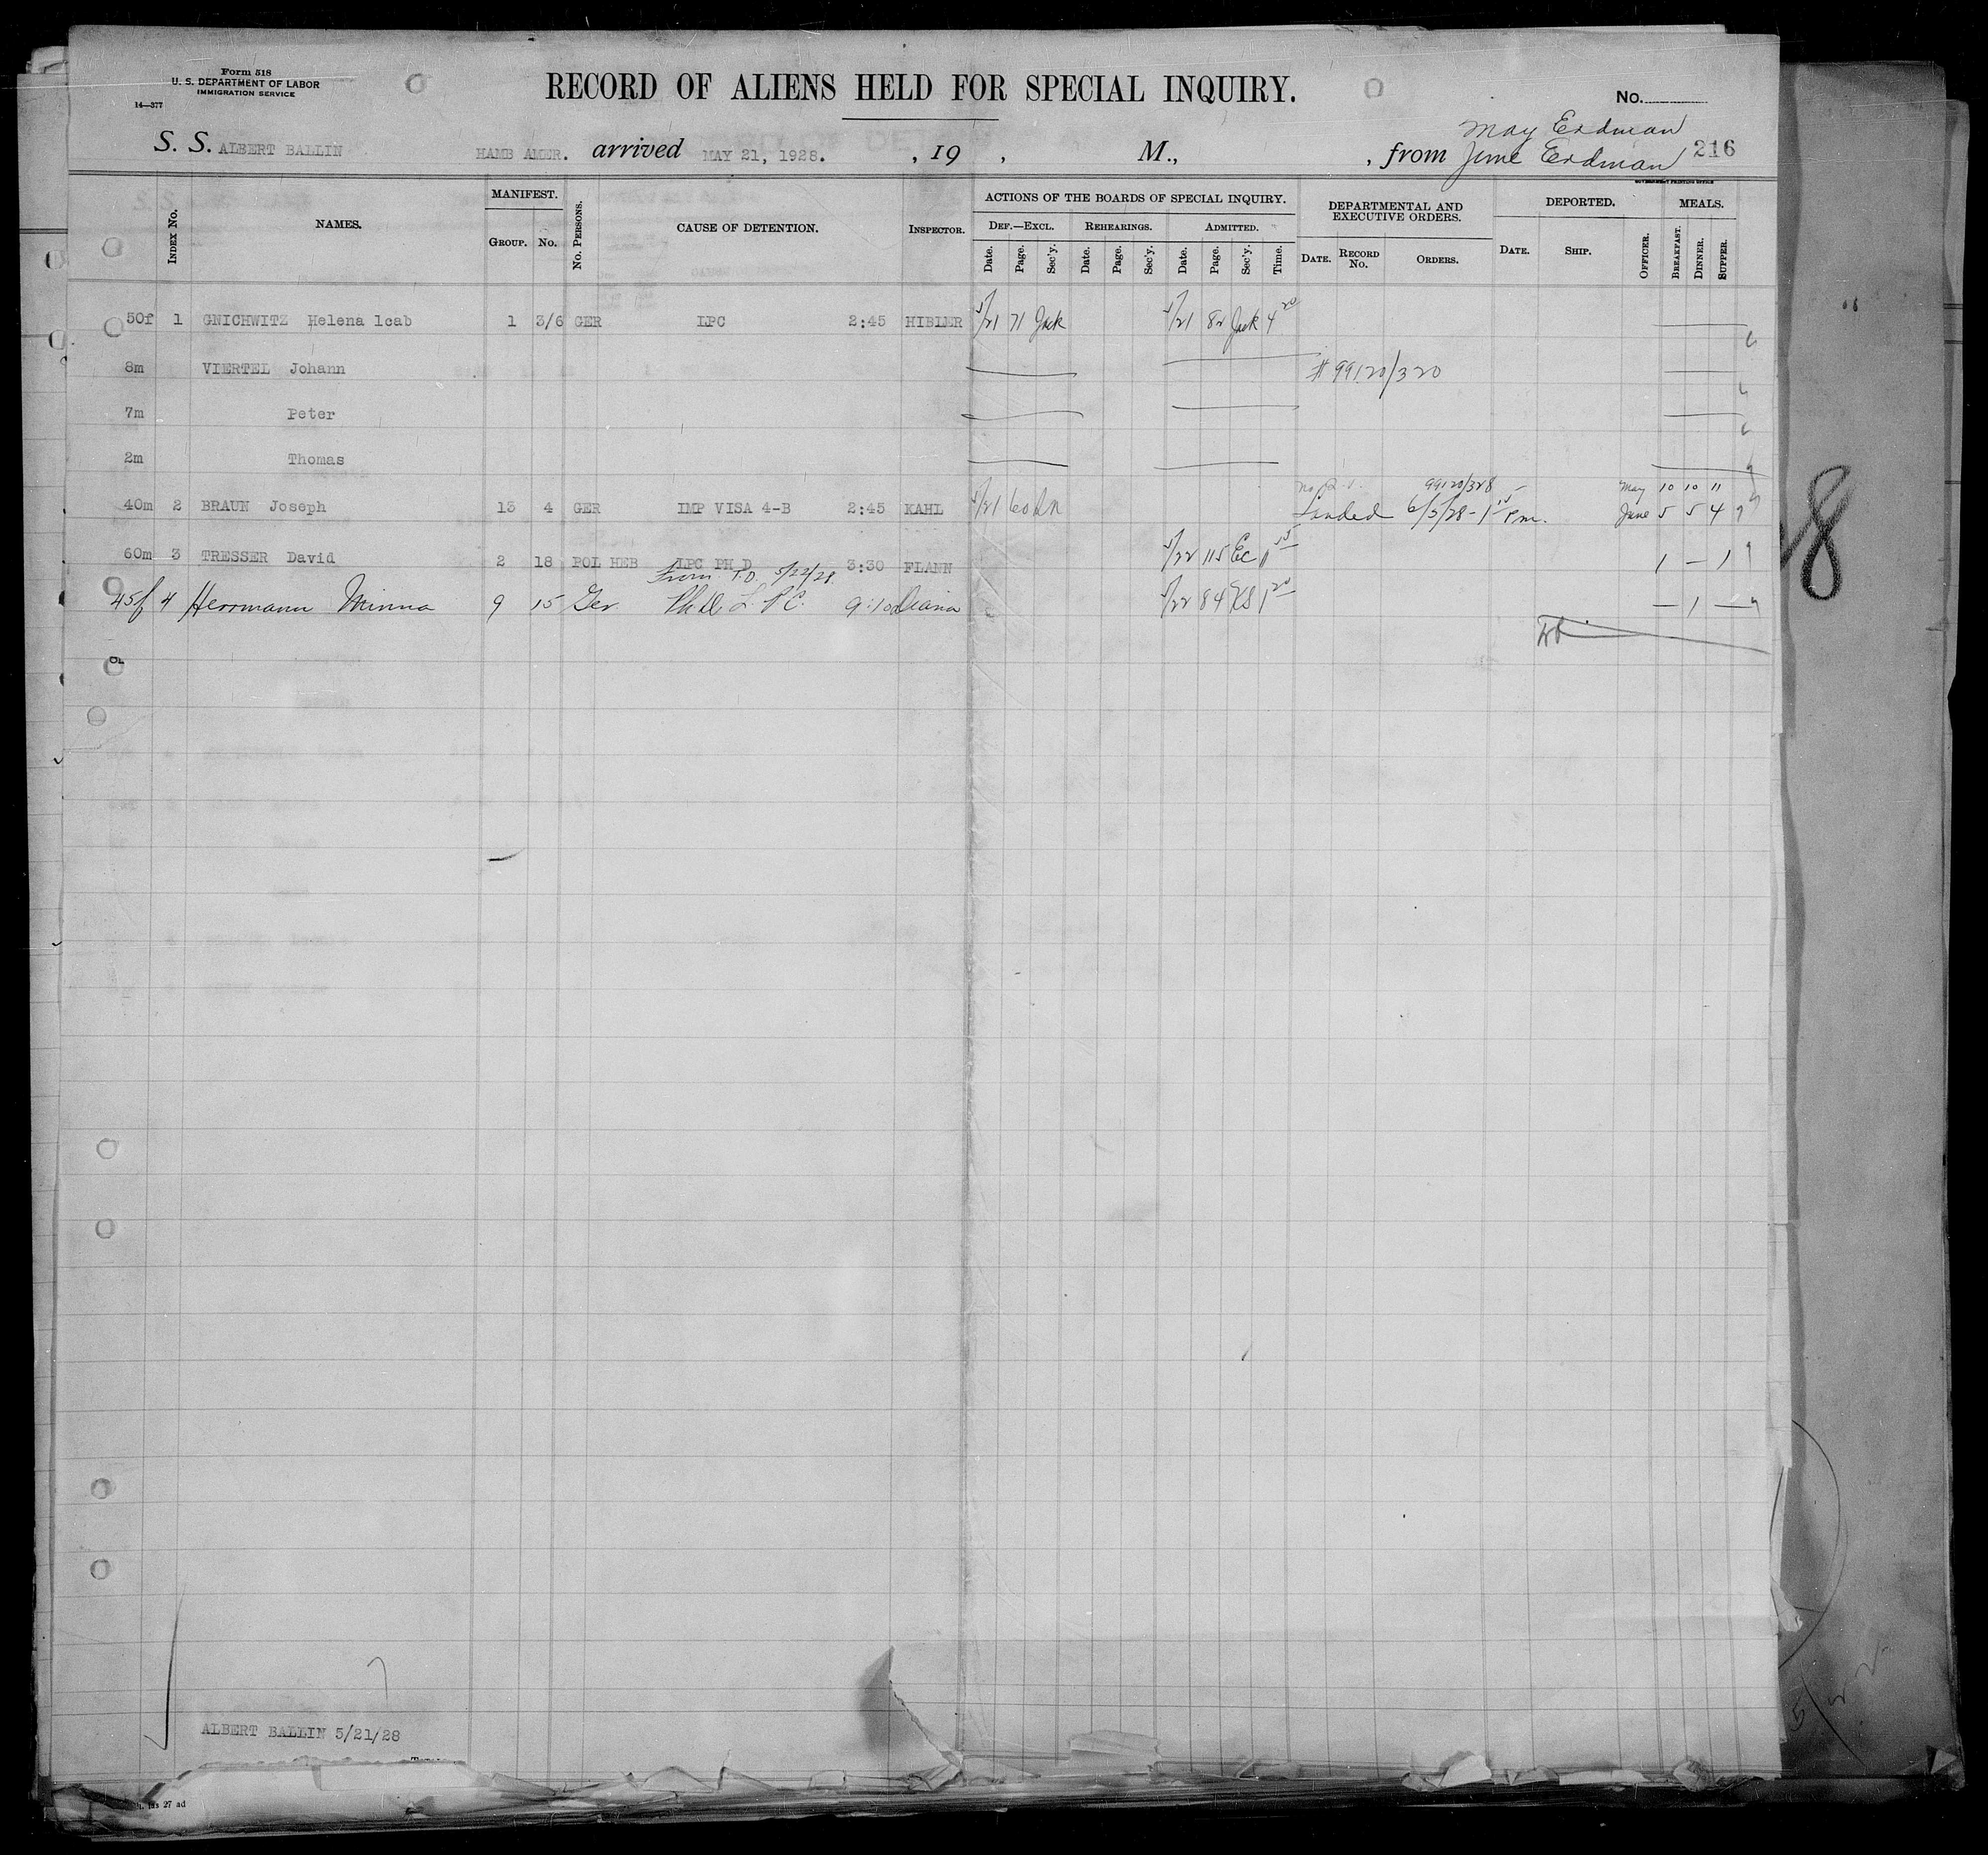 Form 518
U. S. DEPARTMENT OF LABOR
IMMIGRATION SERVICE
14—377
RECORD OF ALIENS HELD FOR SPECIAL INQUIRY.
No.
May Erdman
S. S. ALBERT BALLIN HAMB AMER. arrived MAY 21, 1928. , 19 , M., , from June Erdman 216
GOVERNMENT PRINTING OFFICE
INDEX No. NAMES. MANIFEST. GROUP. No. No. PERSONS. CAUSE OF DETENTION. INSPECTOR. ACTIONS OF THE BOARDS OF SPECIAL INQUIRY. DEPARTMENTAL AND EXECUTIVE ORDERS. DEPORTED. MEALS.
DEF.—EXCL. REHEARINGS. ADMITTED.
Date. Page. Sec'y. Date. Page. Sec'y. Date. Page. Sec'y. Time. DATE. RECORD No. ORDERS. DATE. SHIP. OFFICER. BREAKFAST. DINNER. SUPPER.
50f 1 GNICHWITZ Helena 1cab 1 3/6 GER LPC 2:45 HIBLER 5/21 71 Jack 5/21 82 Jack 4 20
8m VIERTEL Johann # 99120/320
7m Peter
2m Thomas
99120/328 May 10 10 11
40m 2 BRAUN Joseph 13 4 GER IMP VISA 4-B 2:45 KAHL 5/21 60 Landed 6/5/28 - 1 15 Pm. June 5 5 4
60m 3 TRESSER David 2 18 POL HEB LPC PH D 3:30 FLANN 5/22 115 Ec 1 — 1
From T.D. 5/22/28
45f 4 Herrmann Minna 9 15 Ger Ph D. L. P C. 9:10 Diana 5/22 84 KS 1 20 — 1 —
ALBERT BALLIN 5/21/28
27 ad